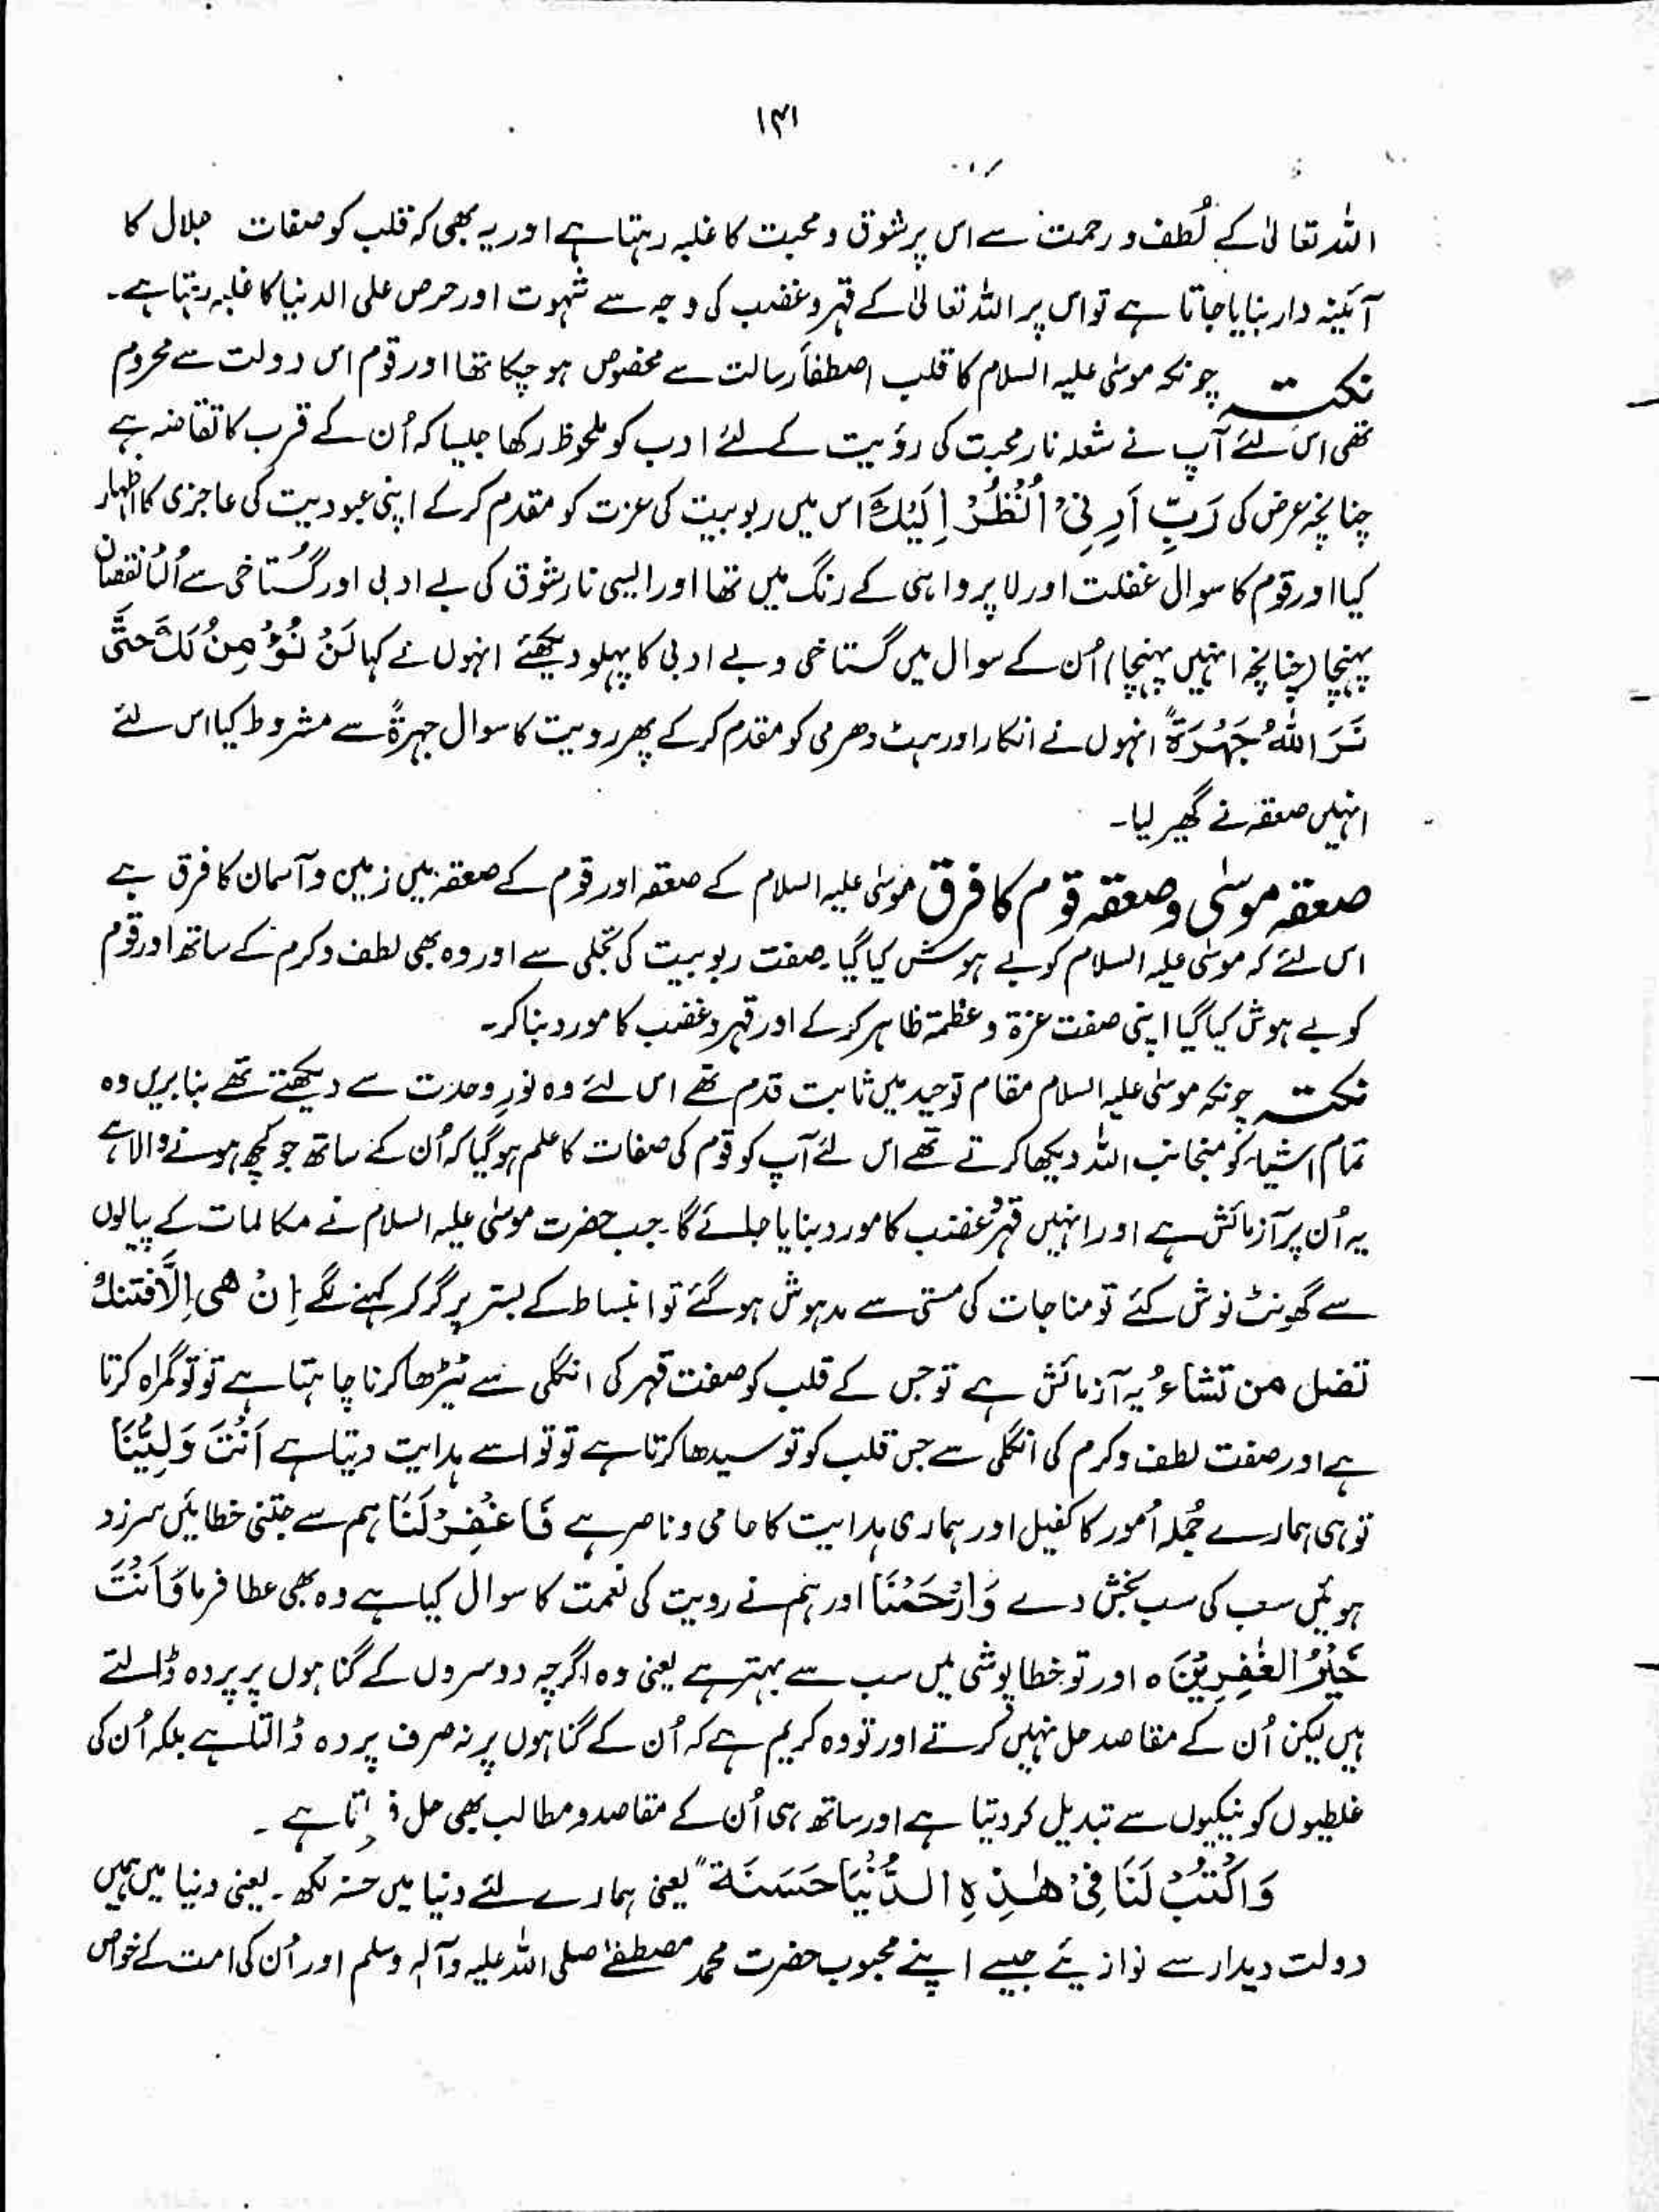 ۱۴۱
اللہ تعالیٰ کے لُطف و رحمت سے اس پر شوق و محبت کا غلبہ رہتا ہے اور یہ بھی کہ قلب کو صفات جلال کا
آئینہ دار بنایا جاتا ہے تو اس پر اللہ تعالیٰ کے قہر و غضب کی وجہ سے شہوت اور حرص علی الدنیا کا غلبہ رہتا ہے۔
نکتہ چونکہ موسٰی علیہ السلام کا قلب اصطفاً رسالت سے مخصوص ہو چکا تھا اور قوم اس دولت سے محروم
تھی اس لئے آپ نے شعلہ نار محبت کی رؤیت کے لئے ادب کو ملحوظ رکھا جیسا کہ اُن کے قرب کا تقاضہ ہے
چنانچہ عرض کی رَبِّ اَرِنِیْ اَنْظُرْ اِلَیْكَ اس میں ربوبیت کی عزت کو مقدم کر کے اپنی عبودیت کی عاجزی کا اظہار
کیا اور قوم کا سوال غفلت اور لاپرواہی کے رنگ میں تھا اور ایسی نار شوق کی بے ادبی اور گُستاخی سے اُلٹا نقصان
پہنچا (چنانچہ انہیں پہنچا) اُن کے سوال میں گستاخی و بے ادبی کا پہلو دیکھئے انہوں نے کہا لَنْ نُؤْمِنُ لَكَ حَتّٰی
نَرَ اللّٰهَ جَهْرَةً انہوں نے انکار اور ہٹ دھرمی کو مقدم کر کے پھر رویت کا سوال جہرةً سے مشروط کیا اس لئے
انہیں صعقہ نے گھیر لیا۔
صعقہ موسٰی و صعقہ قوم کا فرق موسٰی علیہ السلام کے صعقہ اور قوم کے صعقہ میں زمین و آسمان کا فرق ہے
اس لئے کہ موسٰی علیہ السلام کو بے ہوش کیا گیا۔ صفت ربوبیت کی تجلی سے اور وہ بھی لطف و کرم کے ساتھ اور قوم
کو بے ہوش کیا گیا اپنی صفت عزۃ و عظمۃ ظاہر کر کے اور قہر و غضب کا مورد بنا کر۔
نکتہ چونکہ موسٰی علیہ السلام مقام توحید میں ثابت قدم تھے اس لئے وہ نورِ وحدت سے دیکھتے تھے بنابریں وہ
تمام اشیاء کو منجانب اللہ دیکھا کرتے تھے اس لئے آپ کو قوم کی صفات کا علم ہو گیا کہ اُن کے ساتھ جو کچھ ہونے والا ہے
یہ اُن پر آزمائش ہے اور انہیں قہر و غضب کا مورد بنایا جائے گا۔ جب حضرت موسٰی علیہ السلام نے مکالمات کے پیالوں
سے گھونٹ نوش کئے تو مناجات کی مستی سے مدہوش ہو گئے تو انبساط کے بستر پر گر کر کہنے لگے اِنْ ھی اِلَّا فتنتكُ
تضل من تشاءُ یہ آزمائش ہے تو جس کے قلب کو صفت قہر کی انگلی سے ٹیڑھا کرنا چاہتا ہے تو تو گمراہ کرتا
ہے اور صفت لطف و کرم کی انگلی سے جس قلب کو تو سیدھا کرتا ہے تو تو اسے ہدایت دیتا ہے اَنْتَ وَلِیُّنَا
تو ہی ہمارے جُملہ اُمور کا کفیل اور ہماری ہدایت کا حامی و ناصر ہے فَاغْفِرْلَنَا ہم سے جتنی خطائیں سرزد
ہوئیں سب کی سب بخش دے وَارْحَمْنَا اور ہم نے رویت کی نعمت کا سوال کیا ہے وہ بھی عطا فرما وَاَنْتَ
خَیْرُ الْغٰفِرِیْنَ ہ اور تو خطا پوشی میں سب سے بہتر ہے یعنی وہ اگرچہ دوسروں کے گناہوں پر پردہ ڈالتے
ہیں لیکن اُن کے مقاصد حل نہیں کرتے اور تو وہ کریم ہے کہ اُن کے گناہوں پر نہ صرف پردہ ڈالتا ہے بلکہ اُن کی
غلطیوں کو نیکیوں سے تبدیل کر دیتا ہے اور ساتھ ہی اُن کے مقاصد و مطالب بھی حل فرماتا ہے ۔
وَاكْتُبْ لَنَا فِیْ هٰذِهِ الدُّنْیَا حَسَنَةً یعنی ہمارے لئے دنیا میں حسنہ لکھ۔ یعنی دنیا میں ہمیں
دولت دیدار سے نوازیئے جیسے اپنے محبوب حضرت محمد مصطفےٰ صلی اللہ علیہ وآلہ وسلم اور اُن کی امت کے خواص